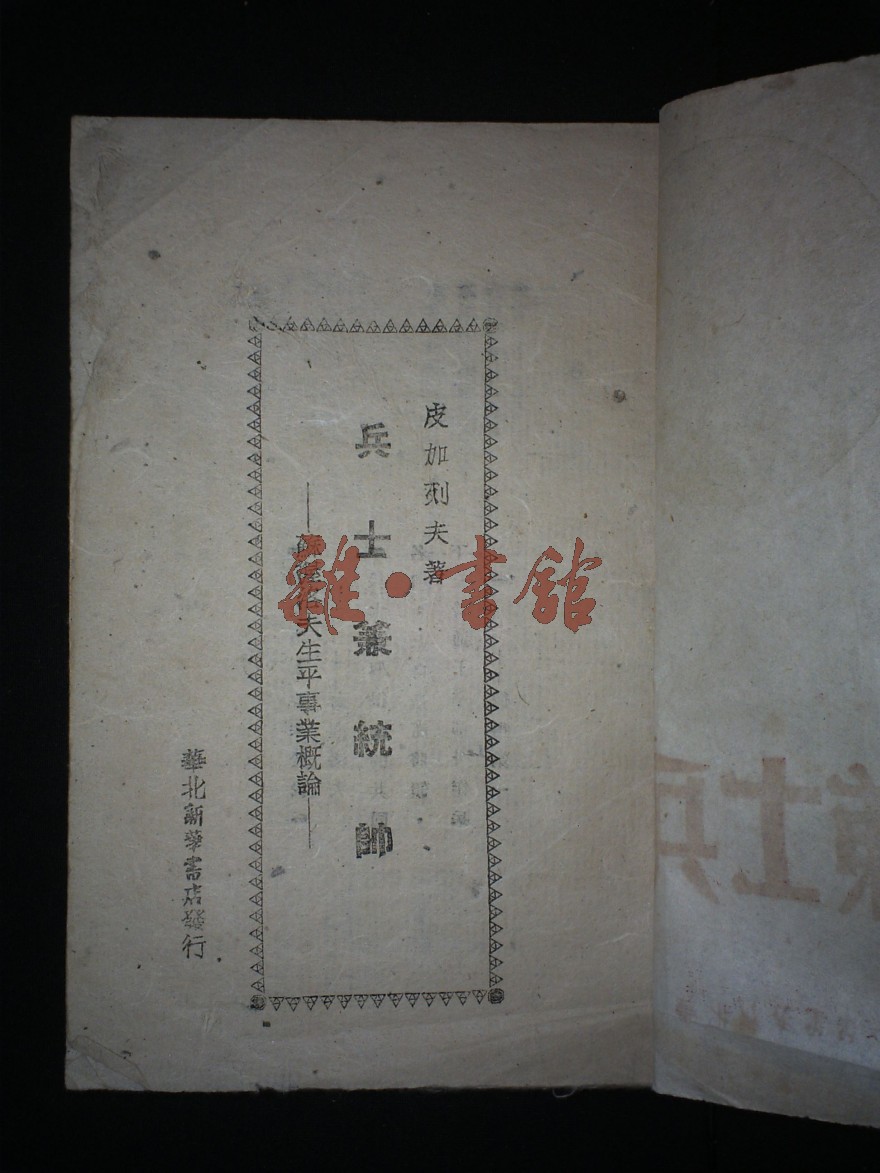 皮加列夫著
兵士兼統帥
夫生平事業概論
華北新華書店發行
雜·書館
士兵